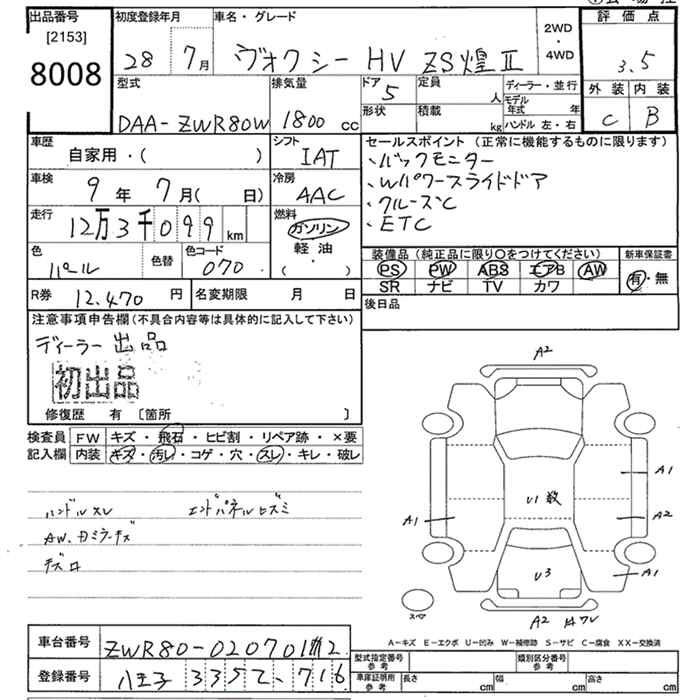 出品番号 初度登録年月 車名・グレード 2WD・4WD 評価点
[2153]
8008 28 7月 ヴォクシー HV ZS煌Ⅱ 3.5
型式 排気量 ドア 定員 人 ディーラー・並行 外装 内装
形状 積載 kg モデル年式 年
ハンドル 左・右
DAA-ZWR80W 1800 cc 5 C B
車歴 自家用・( ) シフト IAT セールスポイント (正常に機能するものに限ります)
、バックモニター
車検 9年 7月( 日) 冷房 AAC 、Wパワースライドドア
、クルーズC
走行 12万3千099 km 燃料 ガソリン 軽油 ・( ) 、ETC
色 パール 色替 色コード 070 装備品 (純正品に限り○をつけてください) 新車保証書
PS PW ABS エアB AW 有・無
SR ナビ TV カワ
R券 12,470 円 名変期限 月 日 後日品
注意事項申告欄 (不具合内容等は具体的に記入して下さい)
ディーラー出品
初出品
修復歴 有 〔箇所 〕
検査員 FW キズ・飛石・ヒビ割・リペア跡・×要
記入欄 内装 キズ・汚レ・コゲ・穴・スレ・キレ・破レ
ハンドルスレ エンドパネルヒズミ
AW、カミラーキズ
A2
A1
U1
A1 A2
U3 A1
スペア A2
A-キズ E-エクボ U-凹み W-補修跡 S-サビ C-腐食 XX-交換済
車台番号 型式指定番号 参考 類別区分番号 参考
登録番号 八王子 335 716 車庫証明用 参考 長さ cm 幅 cm 高さ cm